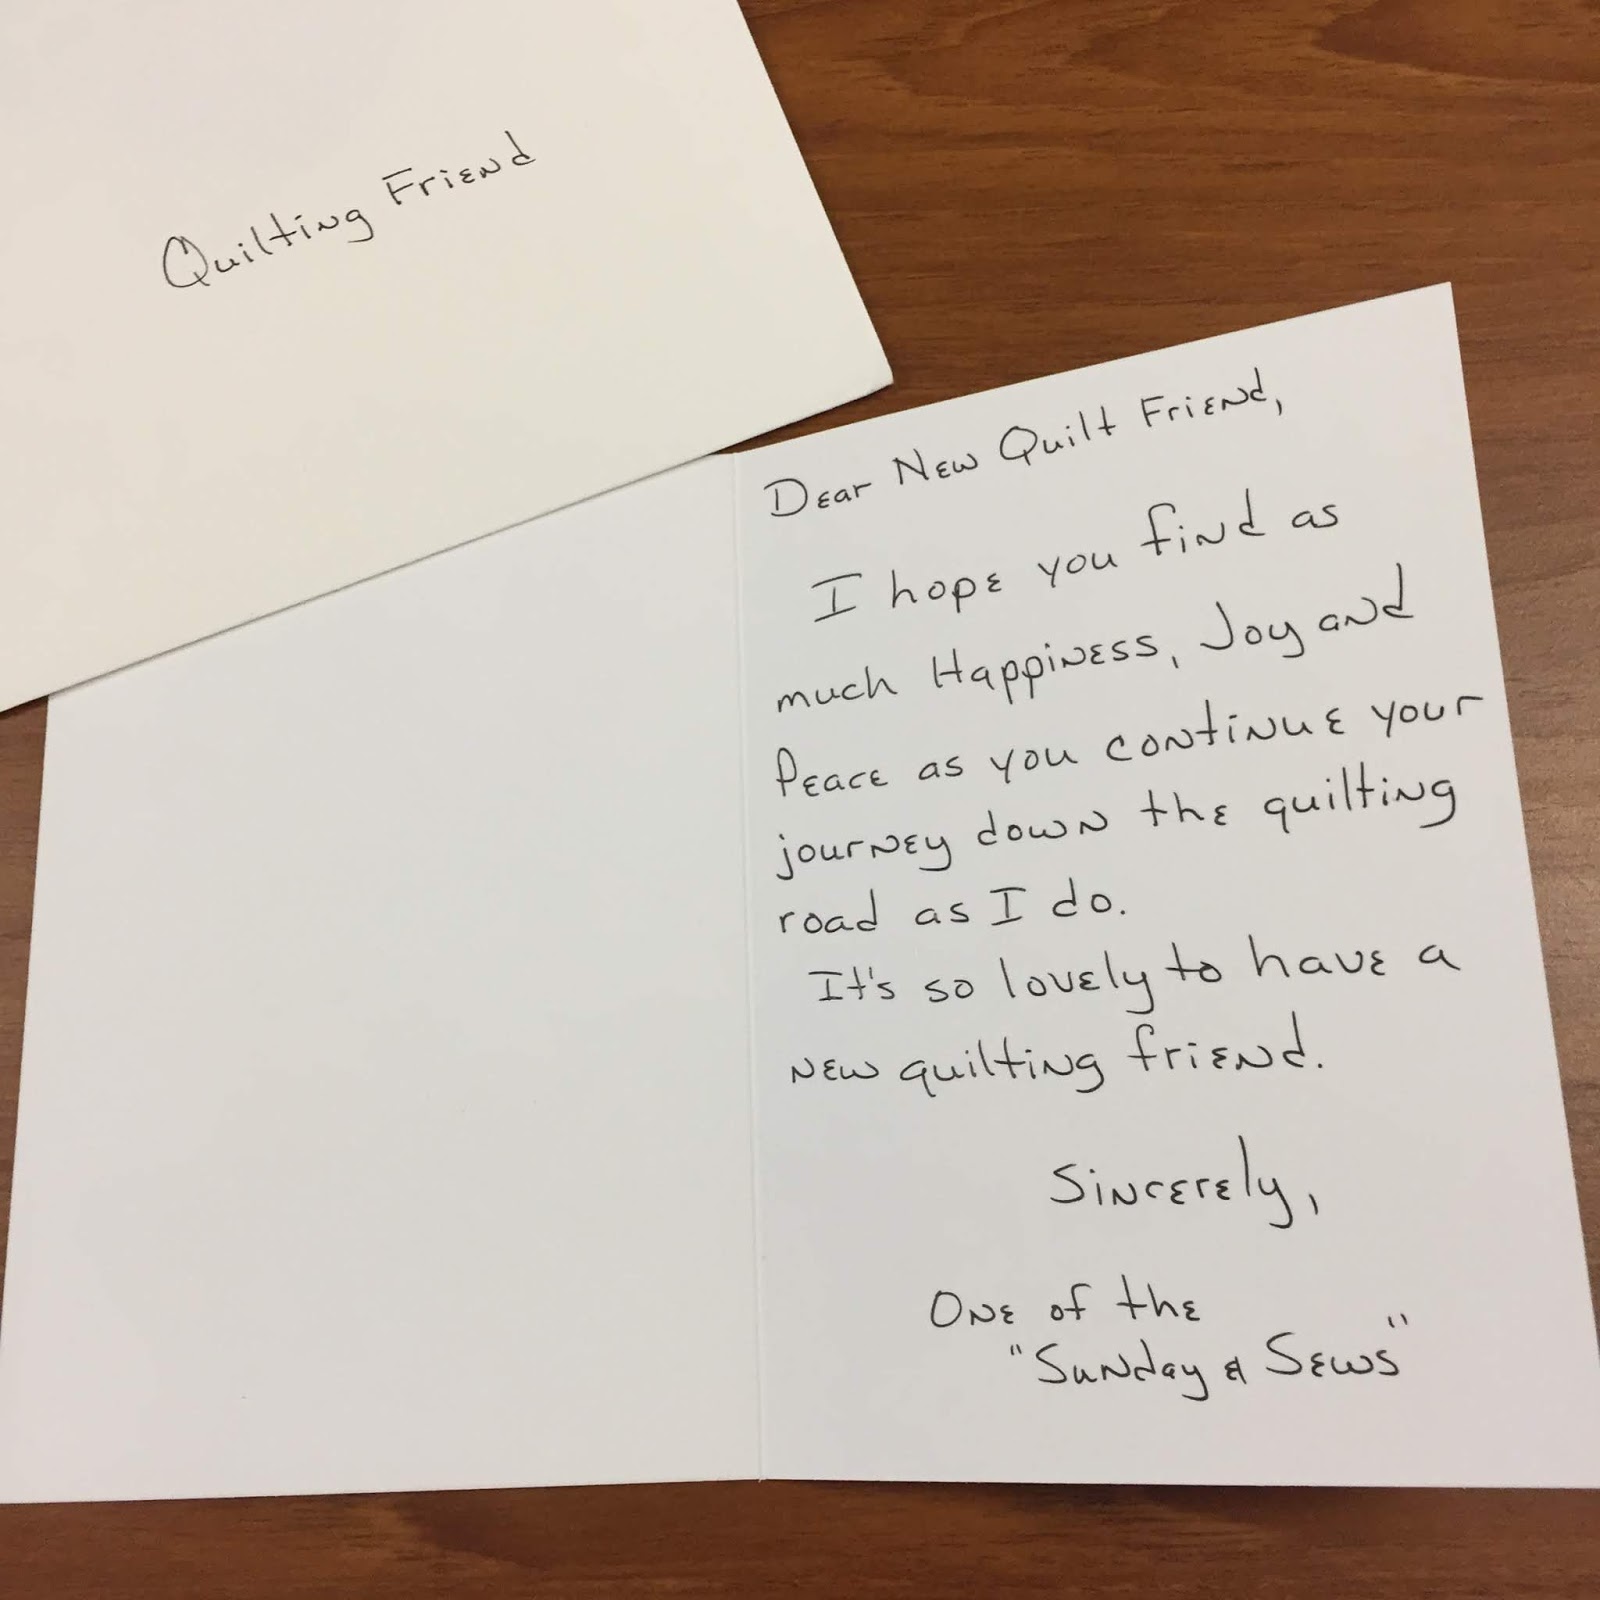 Quilting Friend
Dear New Quilt Friend,
I hope you find as
much Happiness, Joy and
Peace as you continue your
journey down the quilting
road as I do.
It's so lovely to have a
new quilting friend.
Sincerely,
One of the
"Sunday & Sews"